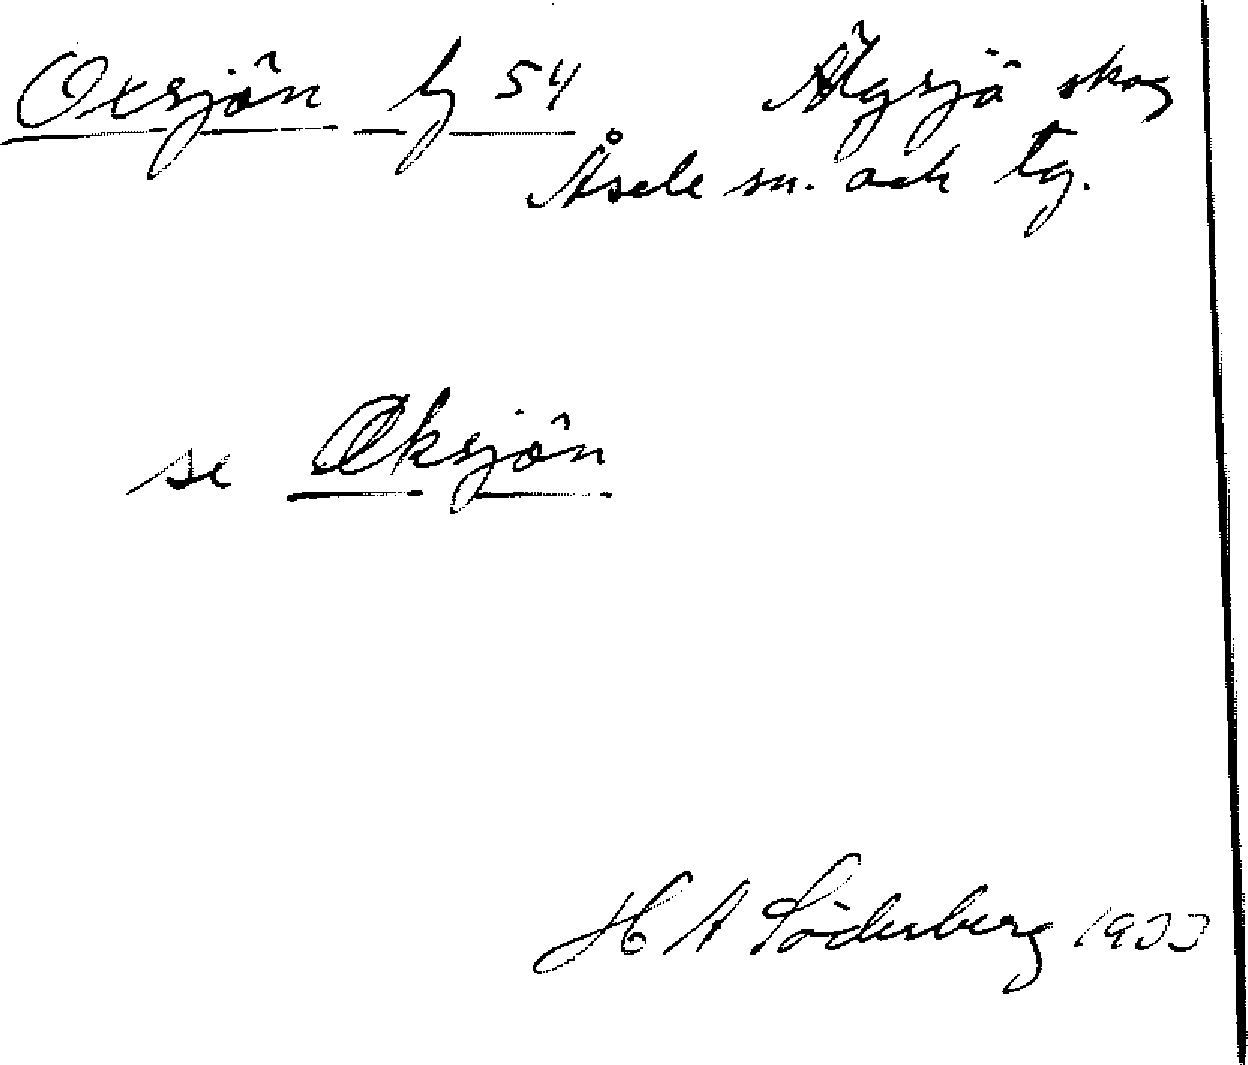 Oxsjön hj 54 Älgsjö skog
Åsele sn. och tg.
se Oksjön
H A Söderberg 1933